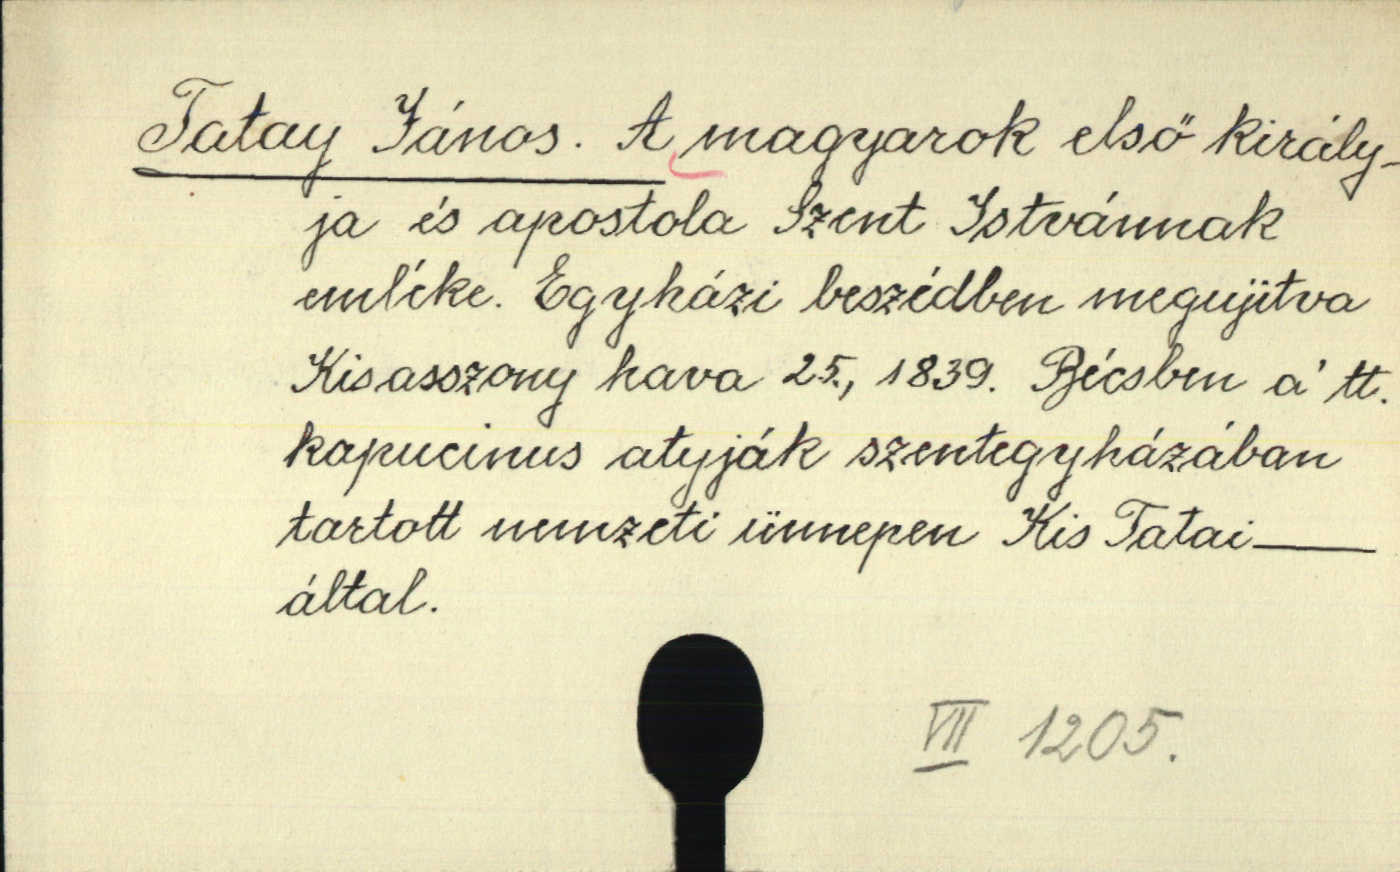 Tatay János. A magyarok első király-
ja és apostola Szent Istvánnak
emléke. Egyházi beszédben megujitva
Kisasszony hava 25., 1839. Bécsben a' tt.
kapucinus atyják szentegyházában
tartott nemzeti ünnepen Kis Tatai ——
által.
VII 1205.